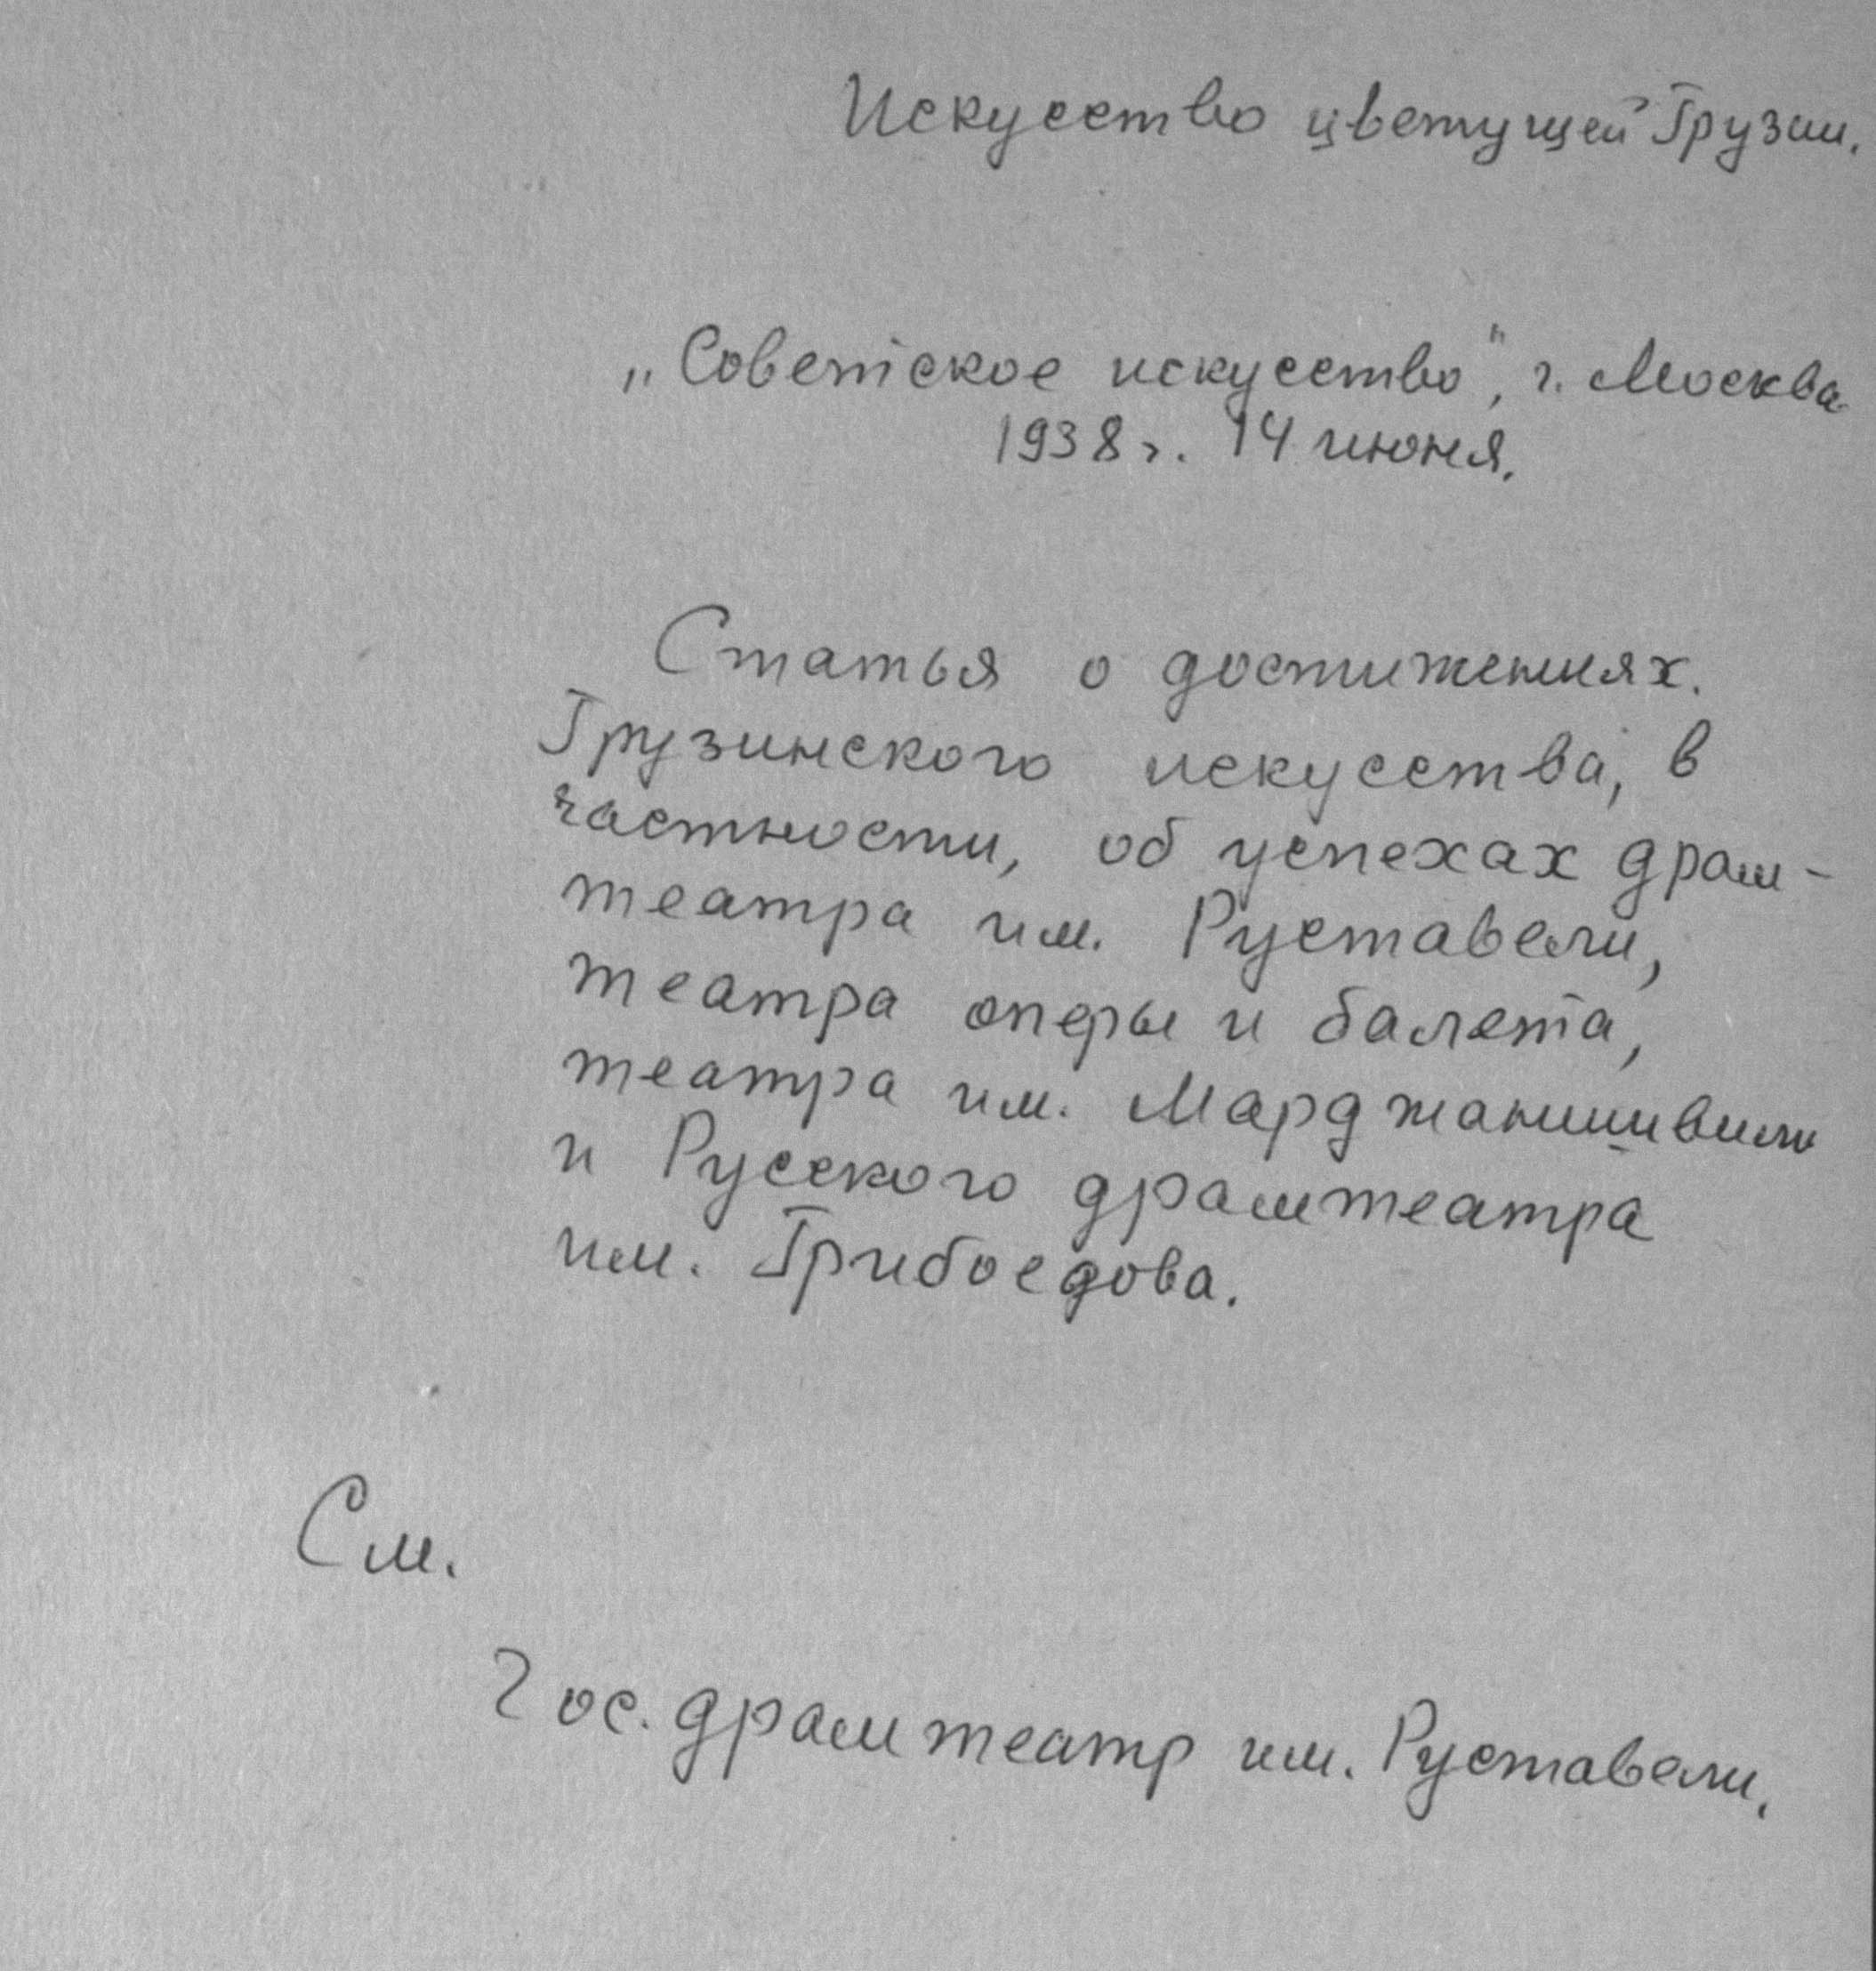 Искусство цветущей Грузии.
„Советское искусство", г. Москва
1938 г. 14 июня.
Статья о достижениях.
Грузинского искусства, в
частности, об успехах драм-
театра им. Руставели,
театра оперы и балета,
театра им. Марджанишвили
и Русского драмтеатра
им. Грибоедова.
См.
Гос. драмтеатр им. Руставели.